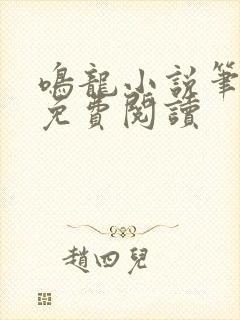 鳴龍小說筆
免費閱讀
趙四兒